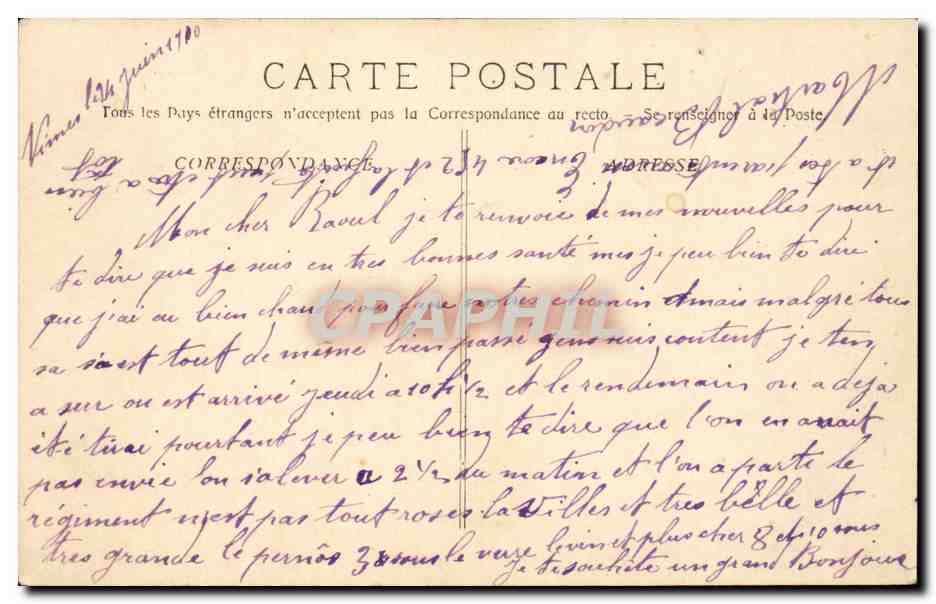 Nimes le 24 juin 1910
CARTE POSTALE
Tous les Pays étrangers n'acceptent pas la Correspondance au recto. Se renseigner à la Poste
CORRESPONDANCE
ADRESSE
Martial Beaudon
Mon cher Raoul je te renvoie de mes nouvelles pour
te dire que je suis en tres bonnes santé mes je peu bien te dire
que j'ai eu bien chaud pour faire notres chemin mais malgré tous
sa s'est tout de meme bien passé content je ten
a sur on est arrivé jeudi a 10h 1/2 et le rendemain on a deja
été tirai pourtant je peu bien te dire que l'on en avait
pas envie l'on s'alever a 2 1/2 du matin et l'on a parte le
régiment n'est pas tout roses la villes et tres bêlle et
tres grande le pernôs 3 sous le verre le vin et plus cher 8 et 10 sous
je te souhete un grand Bonjour
CPAPHIL